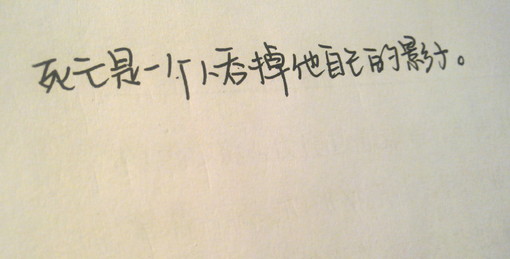 死亡是一个人吞掉他自己的影子。